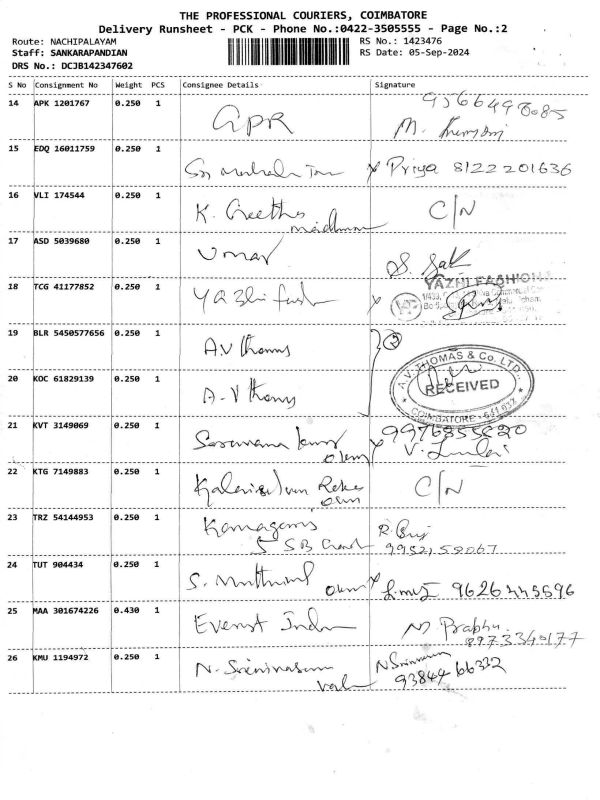 THE PROFESSIONAL COURIERS, COIMBATORE
Delivery Runsheet - PCK - Phone No.:0422-3505555 - Page No.:2
Route: NACHIPALAYAM
RS No.: 1423476
Staff: SANKARAPANDIAN
RS Date: 05-Sep-2024
DRS No.: DCJB142347602
S No Consignment No Weight PCS Consignee Details Signature
14 APK 1201767 0.250 1
APR
M.
15 EDQ 16011759 0.250 1
Priya 8122201636
16 VLI 174544 0.250 1
K. Geetha C/N
17 ASD 5039680 0.250 1
Umar
18 TCG 41177852 0.250 1
YAZHI FASHION
Yazhi
19 BLR 5450577656 0.250 1
A.V Thomas
2
20 KOC 61829139 0.250 1
A.V Thomas
A.V. THOMAS & Co. LTD.
RECEIVED
COIMBATORE - 641 032
21 KVT 3149069 0.250 1
Saravana kumar
22 KTG 7149883 0.250 1
C/N
23 TRZ 54144953 0.250 1
S SB
9952159067
24 TUT 904434 0.250 1
9626445596
25 MAA 301674226 0.430 1
Everest India M Prabhu
8973340177
26 KMU 1194972 0.250 1
N. Srinivasan N Srinivasan
9384466332